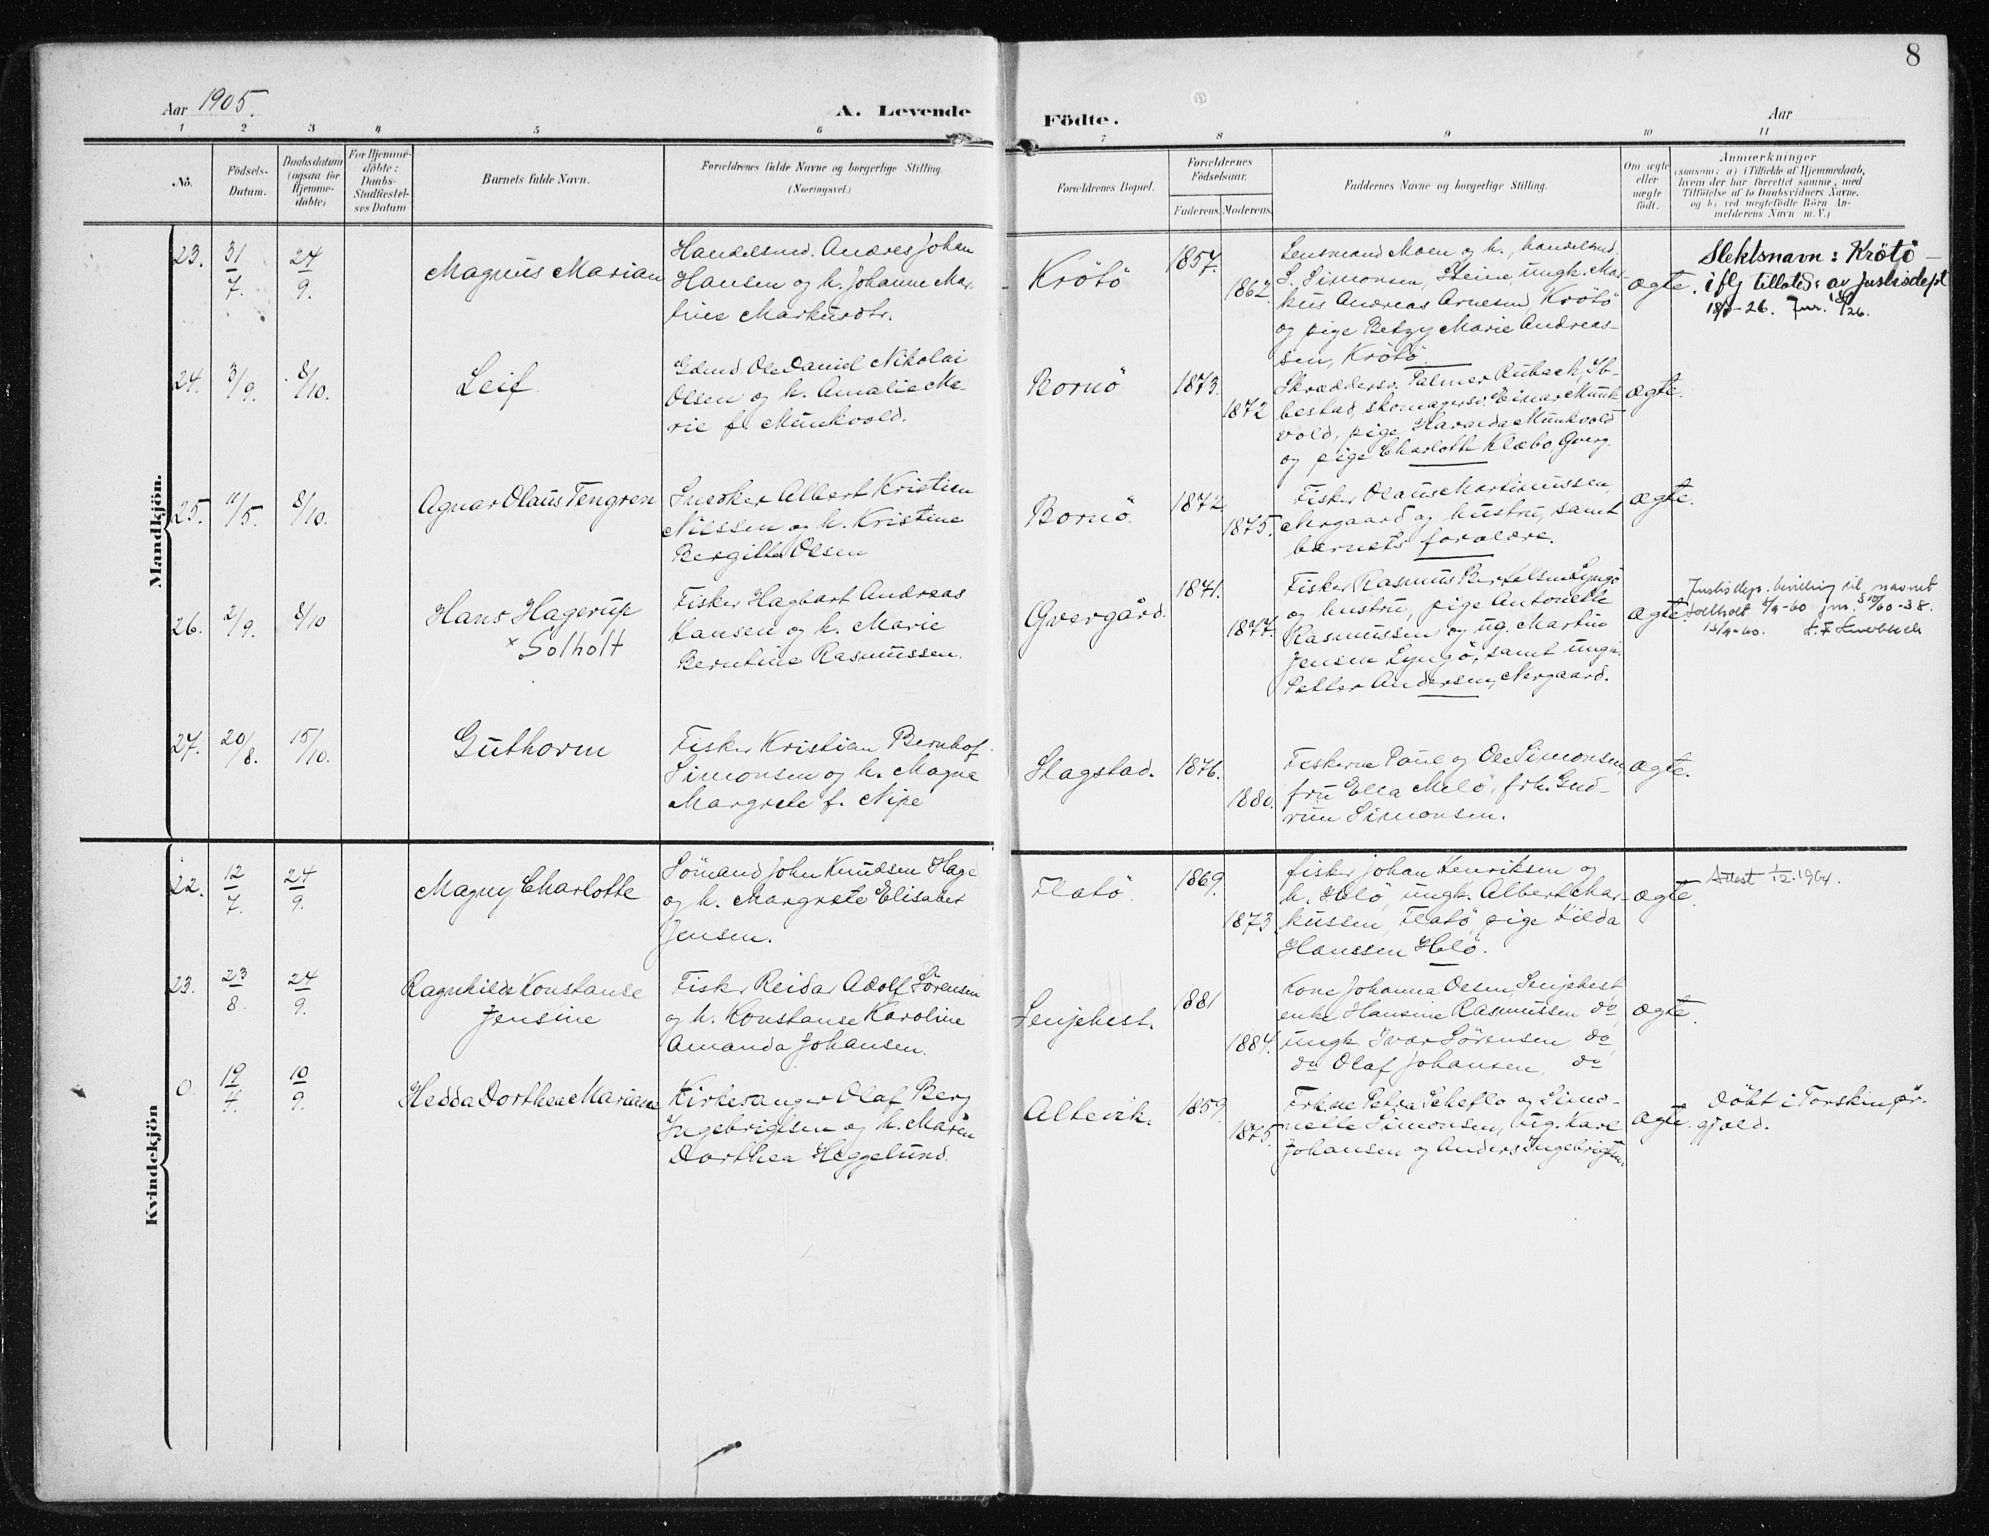 8
Aar 1905.
A. Levende
Födte.
Aar
1 2 3 4 5 6
7 8 9 10 11
No.
Födsels-
Datum.
Daabsdatum
(ogsaa for
Hjemme-
döbte)
For Hjemme-
döbte:
Daabs-
Stadfæstel-
ses Datum
Barnets fulde Navn.
Forældrenes fulde Navne og borgerlige Stilling.
(Næringsvei.)
Forældrenes Bopæl.
Forældrenes
Födselsaar.
Faderens. Moderens.
Faddernes Navne og borgerlige Stilling.
Om ægte
eller
uægte
födt.
Anmærkninger
(saasom: a) i Tilfælde af Hjemmedaab,
hvem der har forrettet samme, med
Tilföielse af to Daabsvidners Navne,
og b) ved uægtefödte Börn An-
melderens Navn m. V.)
Mandkjön.
23. 31/7. 24/9.
Magnus Marian
Handelsmd. Andreas Johan
Hansen og h. Johanne Mar-
tine Markusdtr.
Krötö
1857.
1862
Lensmand Moen og h., handelsmd
L. Simonsen, Steine, ungk. Mar-
kus Andreas Arnesen Krötö
og pige Betzy Marie Andreas-
sen, Krötö.
ægte.
Slektsnavn: Krötö
iflg tillatelse av Justisdept
24. 3/9. 8/10.
Leif
Gdmd Ole Daniel Nikolai
Olsen og h. Amalie Ma-
rie f. Munkvold.
Bornö
1873.
1872
Skræddersv. Palmer Aubach, Ib-
bestad, skomagersv. Einar Munk-
vold, pige Haralda Munkvold
og pige Charlotte Klæbo, Gverg.
ægte.
25. 11/5. 8/10.
Agnar Olaus Tengren
Snedker Albert Kristian
Nilssen og h. Kristine
Bergitte Olsen
Bornö.
1872.
1875.
Fisker Olaus Martinussen,
Nergaard og hustru, samt
barnets forældre.
ægte.
26. 2/9. 8/10
Hans Hagerup
× Solholt
Fisker Hagbart Andreas
Hansen og h. Marie
Berntine Rasmussen.
Gvergård.
1871.
1877.
Fisker Rasmus Bertelsen Lyngö
og hustru, pige Antonette
Rasmussen og ug. Martin
Jensen Lyngö, samt ungk.
Petter Andersen, Nergaard.
ægte.
Justisdep. bevilling til navnet
Solholt
27. 20/8. 15/10.
Guthorm
Fisker Kristian Bernhof
Simonsen og h. Magna
Margrete f. Nipe
Skagstad.
1876.
1880.
Fiskerne Paul og Ole Simonsen,
fru Ella Melö, frk. Gud-
run Simonsen.
ægte.
Kvindekjön
22. 12/7. 24/9.
Magny Charlotte
Sömand John Knudsen Hage
og h. Margrete Elisabet
Jensen.
Flatö.
1869.
1873
fisker Johan Henriksen og
h. Helö, ungk. Albert Mar-
kussen, Flatö, pige Hilda
Hanssen Helö.
ægte.
Attest 1/12.1964.
23. 23/8. 24/9.
Ragnhild Konstanse
Jensine
Fisker Reidar Adolf Sörensen
og h. Konstanse Karoline
Amanda Johansen.
Senjehest.
1881
1884.
Kone Johanna Olsen, Senjehest
enke Hansine Rasmussen do,
ungk. Ivar Sörensen do,
do Olaf Johansen do
ægte.
0. 19/4. 10/9.
Hedda Dorthea Mariane
Kirkesanger Olaf Berg
Ingebrigtsen og h. Maren
Dorthea Heggelund.
Altevik.
1859.
1875.
Frkne Petra Scheflo og Simo-
nette Simonsen, ug. Karl
Johansen og Anders Ingebrigtsen.
ægte.
Döbt i Torsken pr.
gjeld.